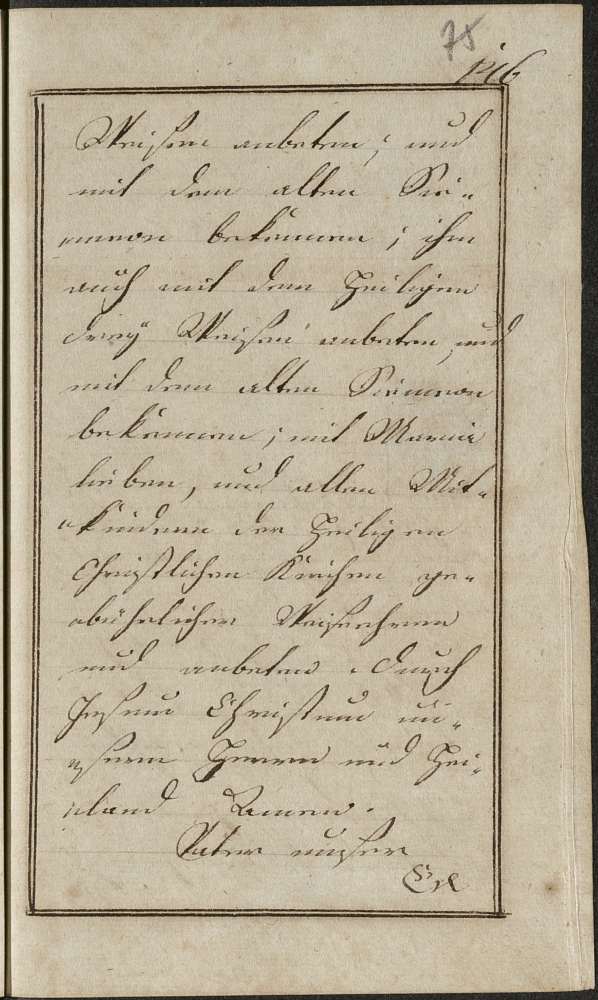 75
146
Weisen anbeten; und
mit dem alten Si-
meon bekennen; ihn
auch mit dem Heiligen
drey Weisen anbeten, und
mit dem alten Simeon
bekennen; mit Maria
lieben, und allen Mit-
kindern der Heiligen
Christlichen Kirchen ge-
bührlicher Weis ehren
und anbeten. Durch
Jesum Christum un-
sern Herrn und Hei-
land Amen.
Vater unser